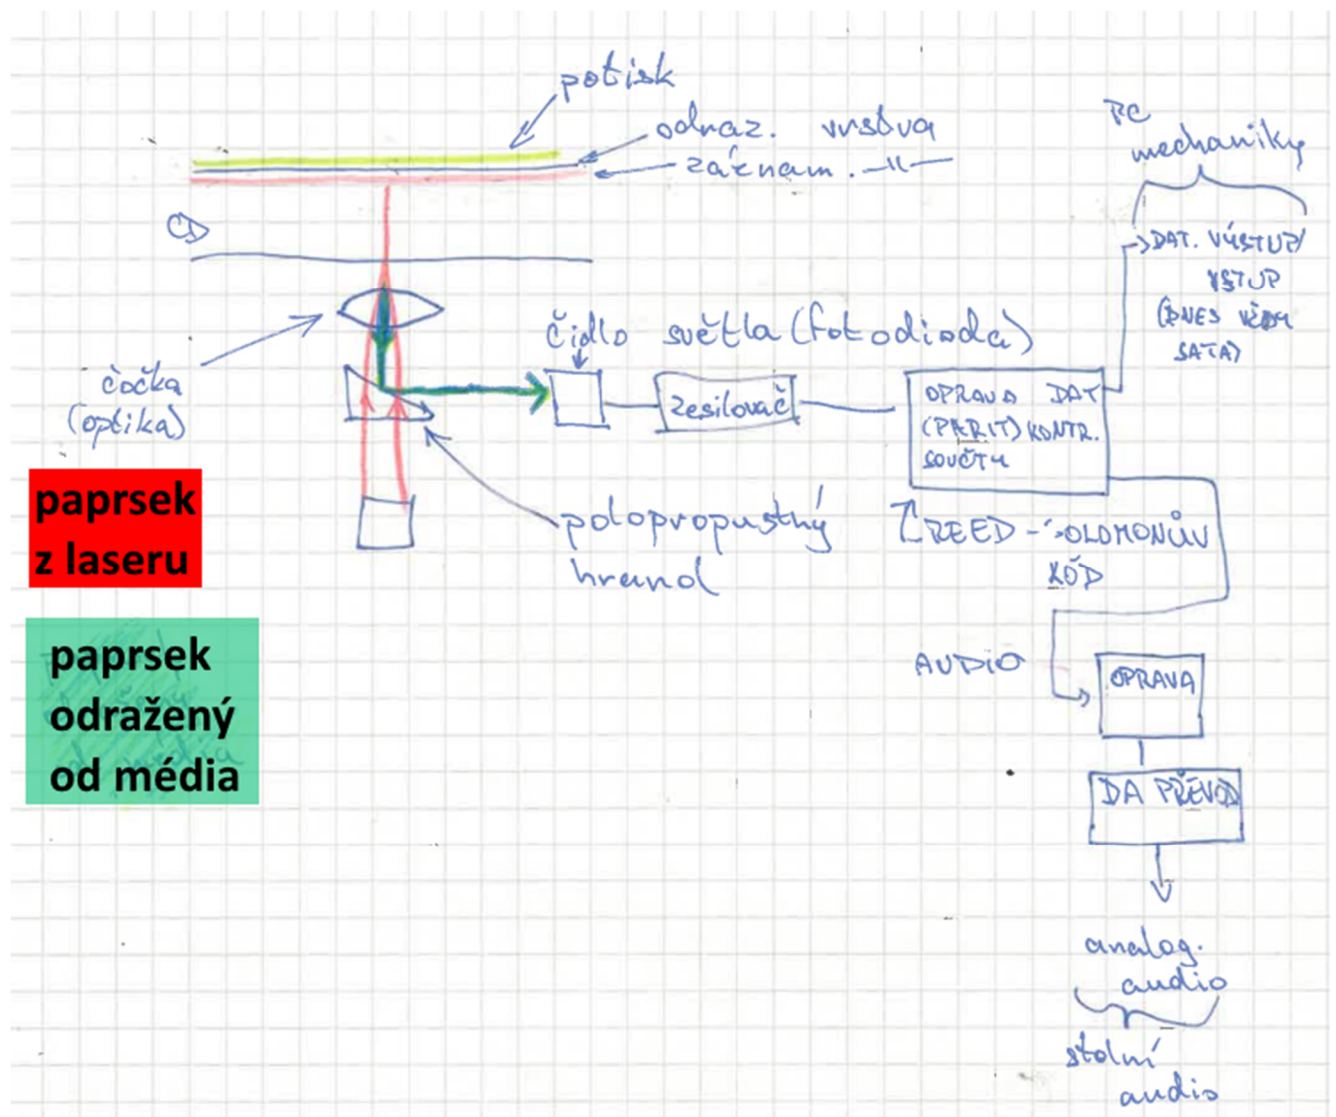 potisk
odraz. vrstva
záznam. -11-
CD
PC
mechaniky
DAT. VÝSTUP/
VSTUP
(DNES VŽDY
SATA)
čočka
(optika)
čidlo světla (fotodioda)
zesilovač
OPRAVA DAT
(PARIT) KONTR.
SOUČTU
REED-SOLOMONŮV
KÓD
polopropustný
hranol
paprsek
z laseru
paprsek
odražený
od média
AUDIO
OPRAVA
DA PŘEVOD
analog.
audio
stolní
audio